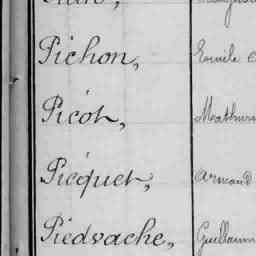 Pichon, Emile
Picot, Mathurin
Picquet, Armand
Piedvache, Guillaum